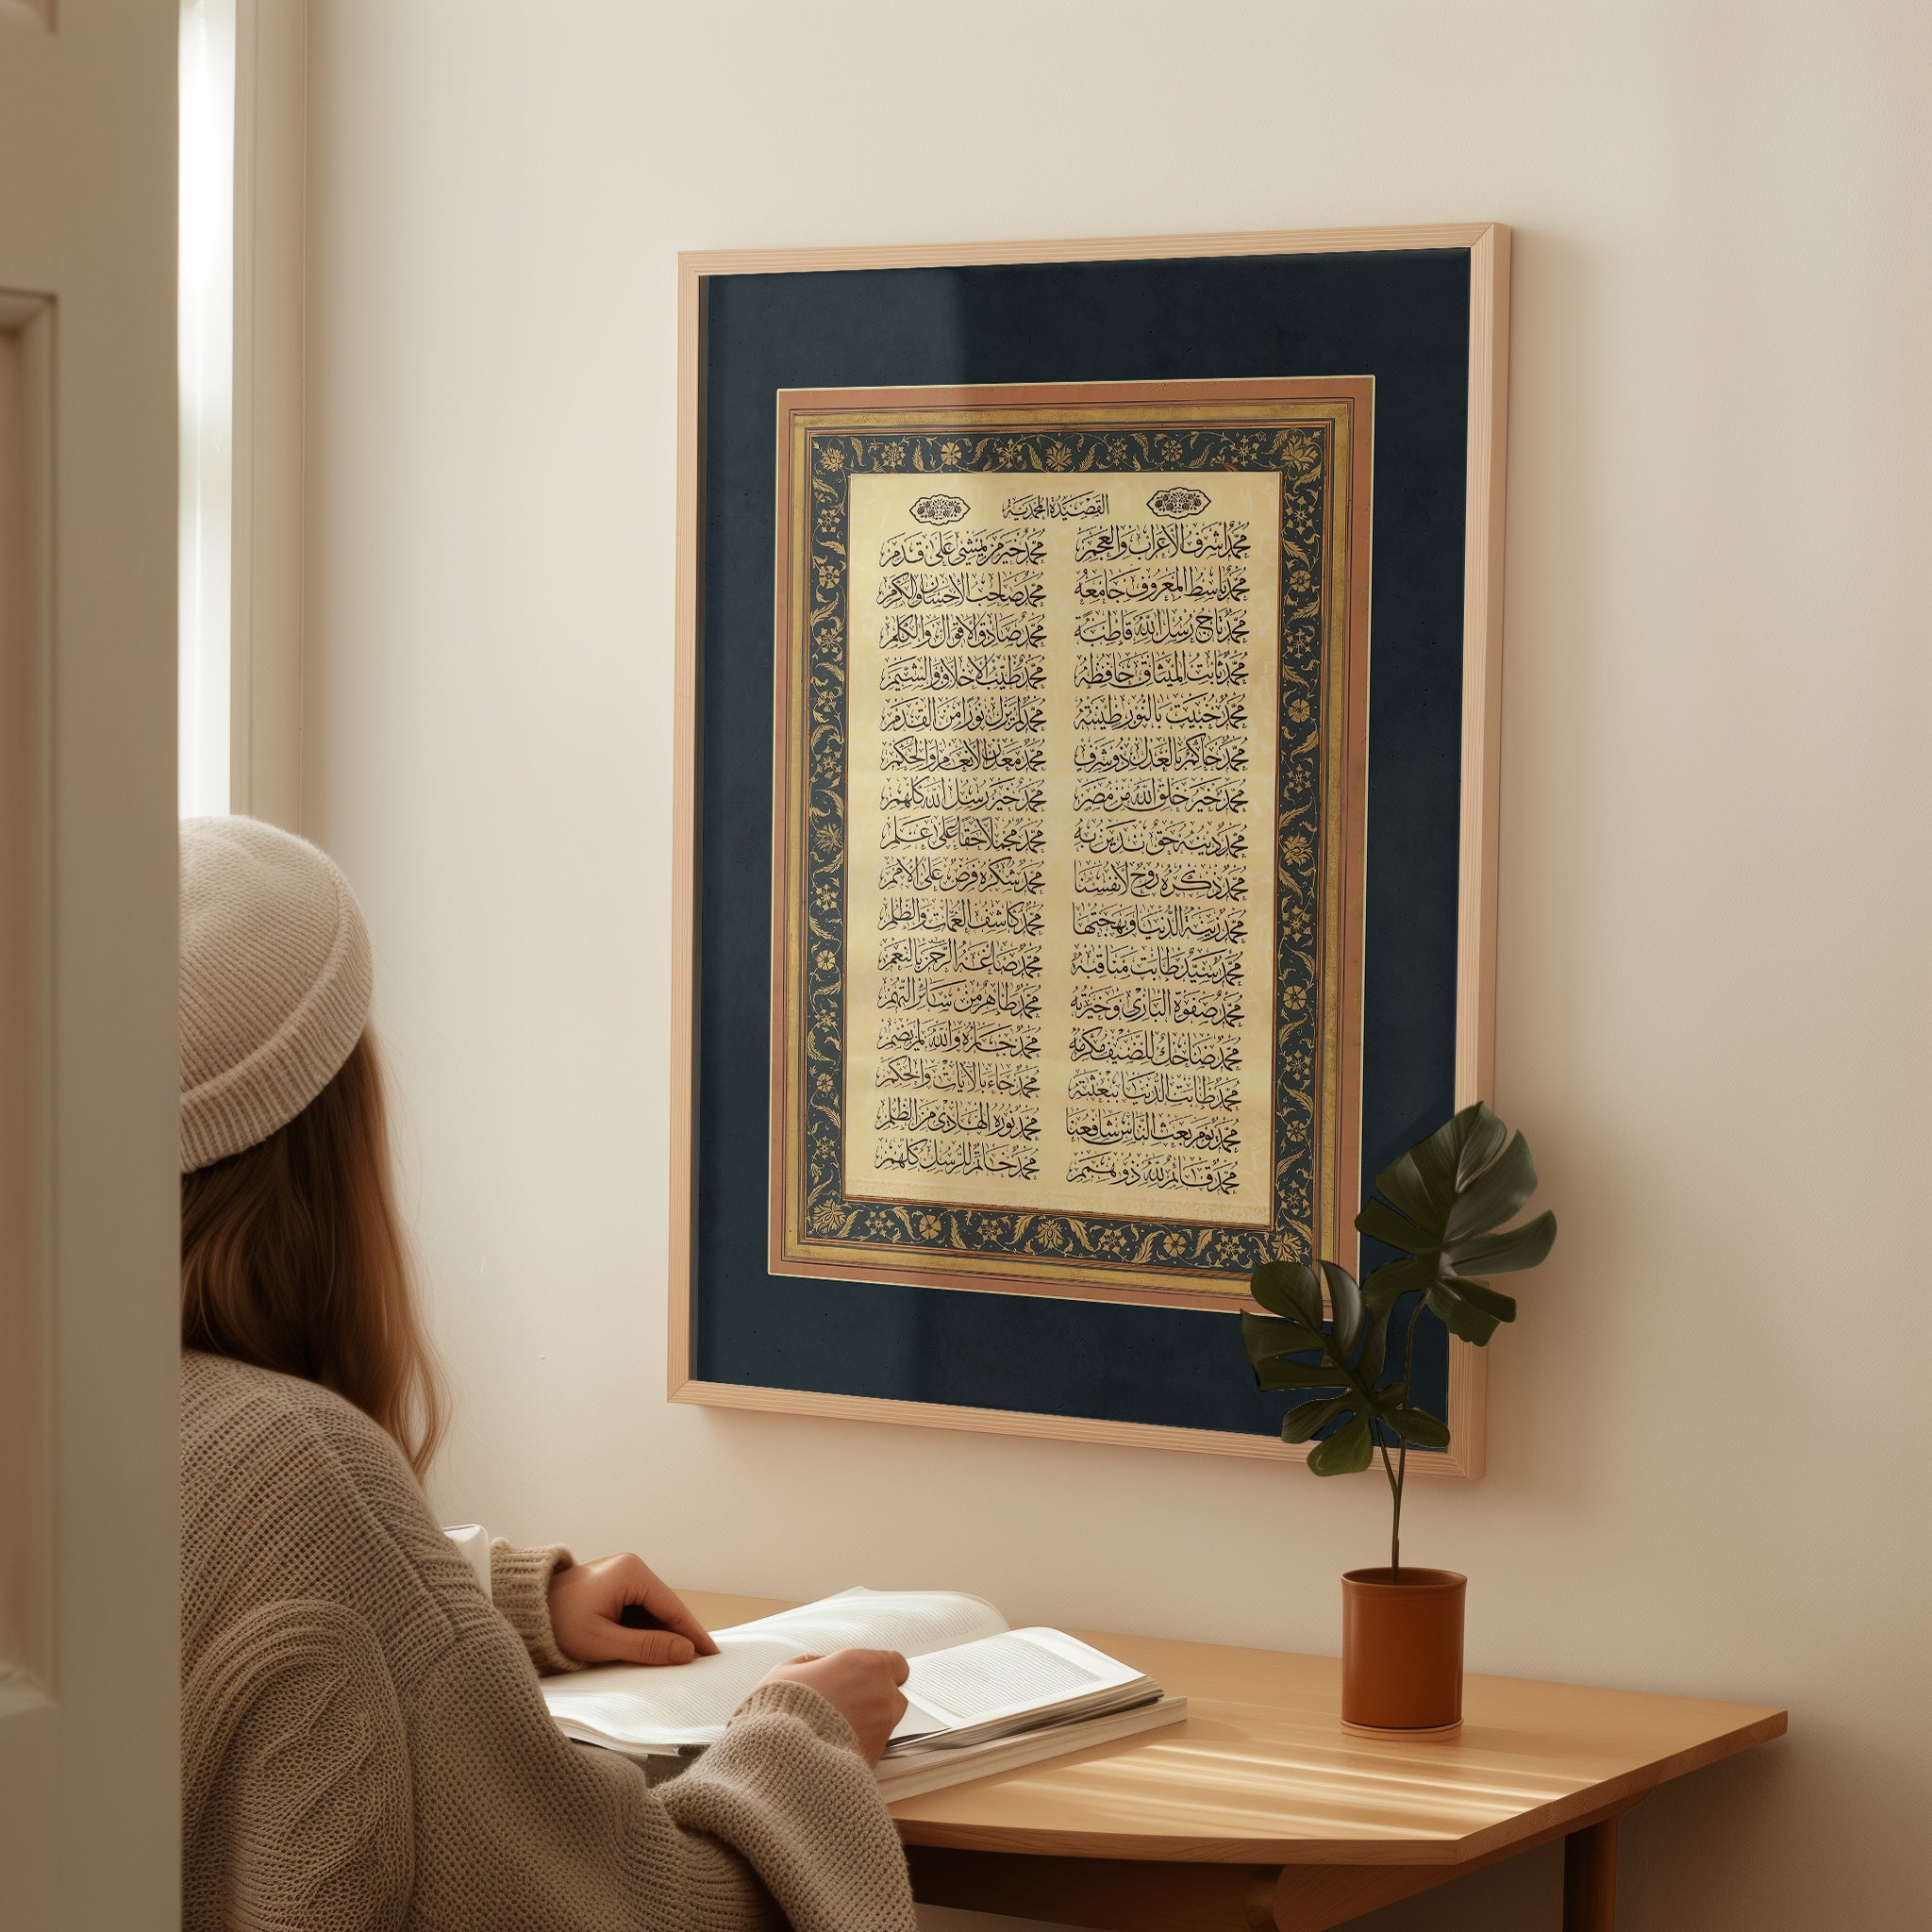 القصيدة المحمدية
محمد أشرف الأعراب والعجم محمد خير من يمشي على قدم
محمد باسط المعروف جامعه محمد صاحب الإحسان والكرم
محمد تاج رسل الله قاطبة محمد صادق الأقوال والكلم
محمد ثابت الميثاق حافظه محمد طيب الأخلاق والشيم
محمد خبيت بالنور طينته محمد لم يزل نورا من القدم
محمد حاكم بالعدل ذو شرف محمد معدن الإنعام والحكم
محمد خير خلق الله من مضر محمد خير رسل الله كلهم
محمد دينه حق ندين به محمد مجملا حقا على علم
محمد ذكره روح لأنفسنا محمد شكره فرض على الأمم
محمد زينة الدنيا وبهجتها محمد كاشف الغمات والظلم
محمد سيد طابت مناقبه محمد صاغه الرحمن بالنعم
محمد صفوة الباري وخيرته محمد طاهر من سائر التهم
محمد ضاحك للضيف مكرمه محمد جاره والله لم يضم
محمد طابت الدنيا ببعثته محمد جاء بالآيات والحكم
محمد يوم بعث الناس شافعنا محمد نوره الهادي من الظلم
محمد قائم لله ذو همم محمد خاتم للرسل كلهم